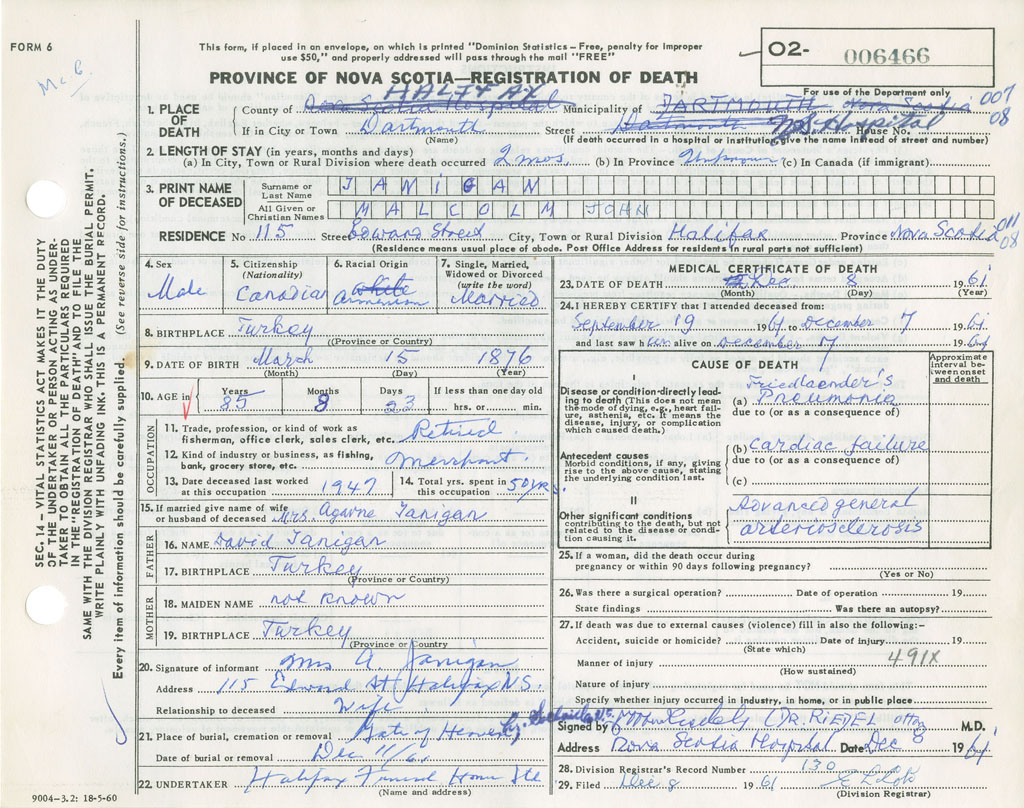 FORM 6
Mc C.
This form, if placed in an envelope, on which is printed "Dominion Statistics – Free, penalty for improper
use $50," and properly addressed will pass through the mail "FREE"
O2- 006466
For use of the Department only
PROVINCE OF NOVA SCOTIA—REGISTRATION OF DEATH
HALIFAX
1. PLACE OF DEATH
County of Nova Scotia Hospital Municipality of DARTMOUTH Nova Scotia 007 08
If in City or Town Dartmouth Street Dartmouth N.S. Hospital House No.
(Name) (If death occurred in a hospital or institution, give the name instead of street and number)
2. LENGTH OF STAY (in years, months and days)
(a) In City, Town or Rural Division where death occurred 2 mos. (b) In Province Unknown (c) In Canada (if immigrant)
3. PRINT NAME OF DECEASED
Surname or Last Name JANIGAN
All Given or Christian Names MALCOLM JOHN
RESIDENCE No 115 Street Edward Street City, Town or Rural Division Halifax Province Nova Scotia 011 08
(Residence means usual place of abode. Post Office Address for residents in rural parts not sufficient)
4. Sex Male
5. Citizenship (Nationality) Canadian
6. Racial Origin white Armenian
7. Single, Married, Widowed or Divorced (write the word) Married
8. BIRTHPLACE Turkey
(Province or Country)
9. DATE OF BIRTH March 15 1876
(Month) (Day) (Year)
10. AGE in Years 85 Months 8 Days 23 If less than one day old hrs. or min.
OCCUPATION
11. Trade, profession, or kind of work as
fisherman, office clerk, sales clerk, etc. Retired
12. Kind of industry or business, as fishing,
bank, grocery store, etc. Merchant.
13. Date deceased last worked
at this occupation 1947
14. Total yrs. spent in
this occupation 50 yrs.
15. If married give name of wife
or husband of deceased Mrs. Agavne Janigan
FATHER
16. NAME David Janigan
17. BIRTHPLACE Turkey
(Province or Country)
MOTHER
18. MAIDEN NAME not known
19. BIRTHPLACE Turkey
(Province or Country
20. Signature of informant Mrs A. Janigan
Address 115 Edward St Halifax N.S.
Relationship to deceased Wife
21. Place of burial, cremation or removal Gate of Heaven
Date of burial or removal Dec 11/61
22. UNDERTAKER Halifax Funeral Home Ltd
(Name and address)
9004-3.2: 18-5-60
MEDICAL CERTIFICATE OF DEATH
23. DATE OF DEATH Dec 8 1961
(Month) (Day) (Year)
24. I HEREBY CERTIFY that I attended deceased from:
September 19 1961 to December 7 1961
and last saw him alive on December 7 1961
CAUSE OF DEATH
Approximate interval between onset and death
I
Disease or condition directly leading to death (This does not mean
the mode of dying, e.g., heart failure, asthenia, etc. It means the
disease, injury, or complication which caused death.)
(a) Friedlaender's Pneumonia
due to (or as a consequence of)
Antecedent causes
Morbid conditions, if any, giving
rise to the above cause, stating
the underlying condition last.
(b) cardiac failure
due to (or as a consequence of)
(c)
II
Other significant conditions
contributing to the death, but not
related to the disease or condition causing it.
Advanced general
arteriosclerosis
25. If a woman, did the death occur during
pregnancy or within 90 days following pregnancy?
(Yes or No)
26. Was there a surgical operation? Date of operation 19
State findings Was there an autopsy?
27. If death was due to external causes (violence) fill in also the following:–
Accident, suicide or homicide? Date of injury 19
(State which)
491X
Manner of injury
(How sustained)
Nature of injury
Specify whether injury occurred in industry, in home, or in public place
Signed by (DR. RIEDEL M.D.
Address Nova Scotia Hospital Date Dec 8 1961
28. Division Registrar's Record Number 130
29. Filed Dec 8 1961
(Division Registrar)
SEC. 14 – VITAL STATISTICS ACT MAKES IT THE DUTY
OF THE UNDERTAKER OR PERSON ACTING AS UNDER-
TAKER TO OBTAIN ALL THE PARTICULARS REQUIRED
IN THE "REGISTRATION OF DEATH" AND TO FILE THE
SAME WITH THE DIVISION REGISTRAR WHO SHALL ISSUE THE BURIAL PERMIT.
WRITE PLAINLY WITH UNFADING INK. THIS IS A PERMANENT RECORD.
Every item of information should be carefully supplied. (See reverse side for instructions.)